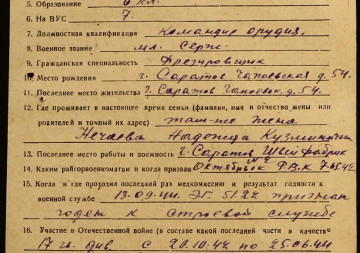 5. Образование 6 кл.
6. На ВУС 7.
7. Должностная квалификация командир орудия.
8. Военное звание мл. серж.
9. Гражданская специальность Фрезировщик
10. Место рождения г. Саратов Чапаевская д. 54.
11. Последнее место жительства г. Саратов Чапаевск. д. 54.
12. Где проживает в настоящее время семья (фамилия, имя и отчество жены или
родителей и точный их адрес) там-же жена
Нечаева Надежда Кузминична
13. Последнее место работы и должность г. Саратов Швей фабрик
14. Каким райгорвоенкоматом и когда призван Октябрьск РВК
15. Когда и где проходил последний раз медкомиссию и результат годности к
военной службе 13.09.44. ЭГ 5122 признан
годен к строевой службе
16. Участие в Отечественной войне (в составе какой последней части и в качестве
17 гв. див. с 20.10.42 по 25.06.44